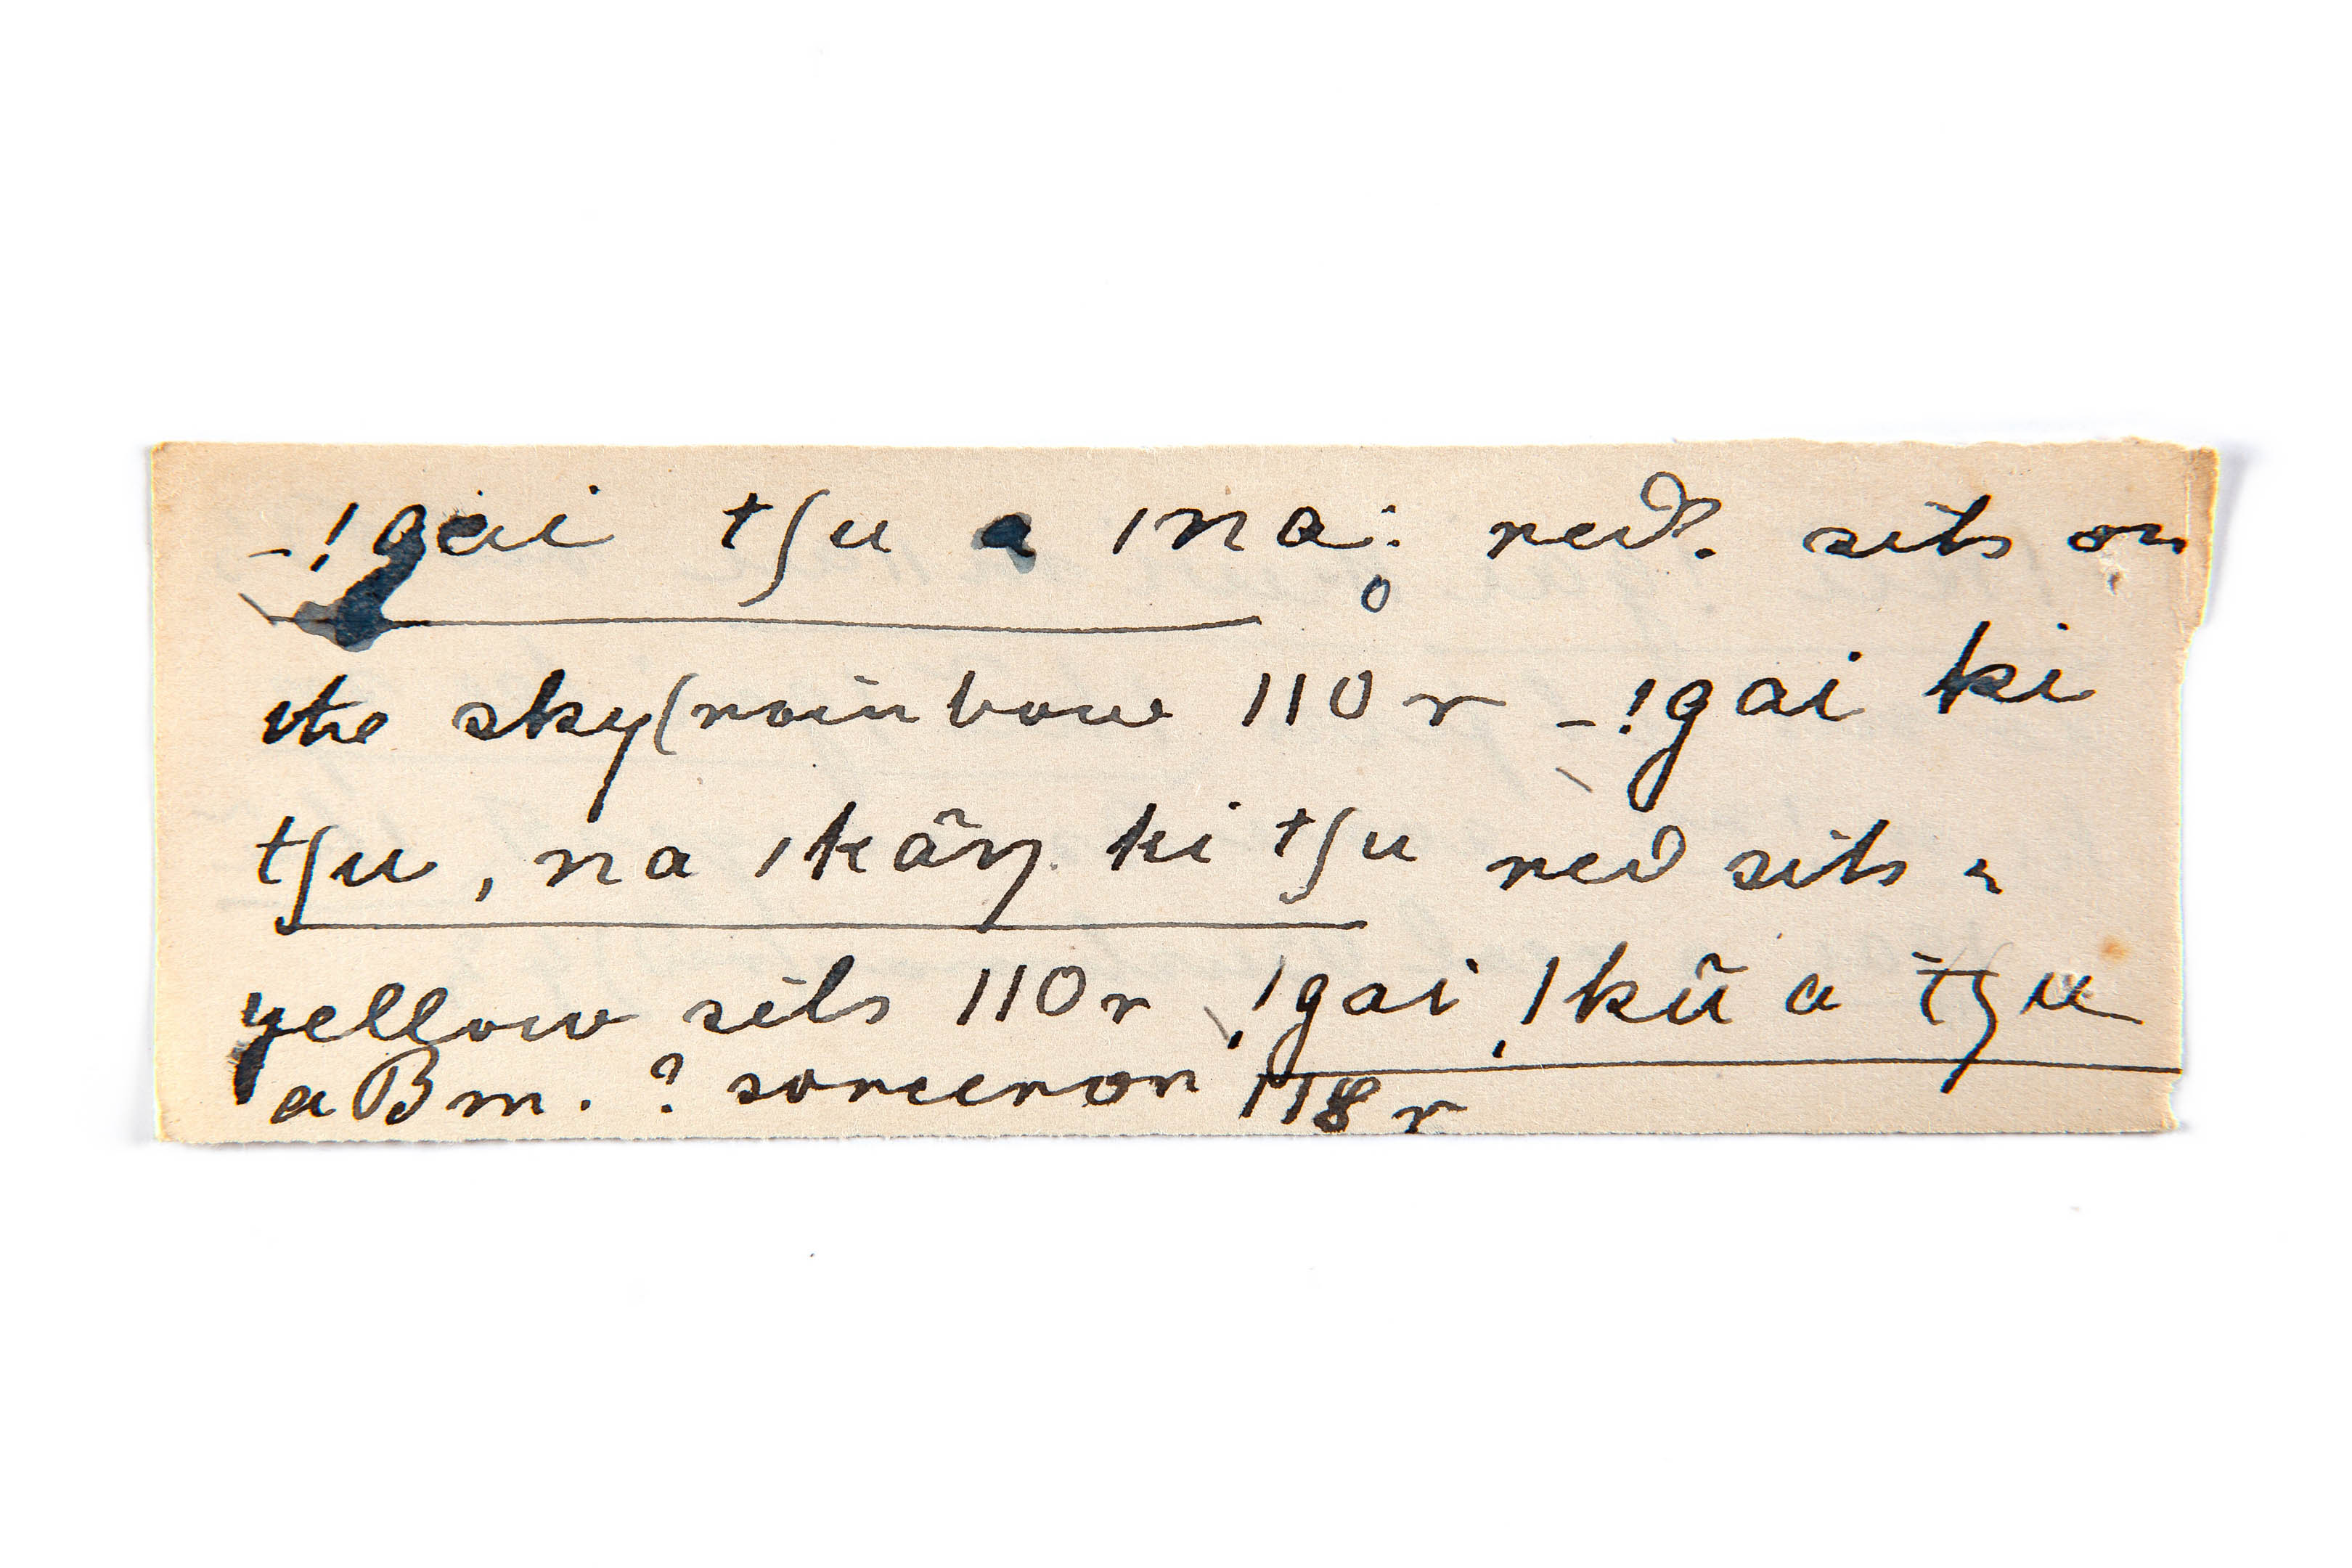 _ ! gai tʃu a ǀna̰: red. sits on
the sky (rainbow 110 r _ ! gai ki
tʃu, na ǀkãŋ ki tʃu red sits =
yellow sits 110 r ˎ!gai ˌǀkũ a tʃu
a Bm. ? sorceror 118 r